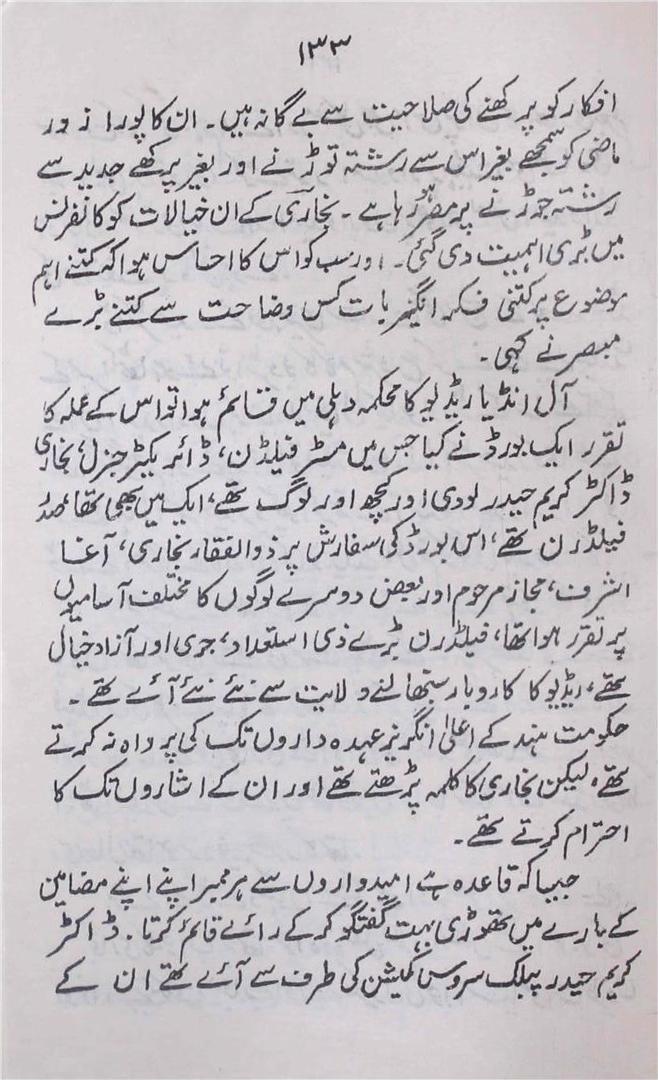 ۱۳۳
افکار کو پرکھنے کی صلاحیت سے بے گانہ ہیں۔ ان کا پورا زور
ماضی کو سمجھے بغیر اس سے رشتہ توڑنے اور بغیر پرکھے جدید سے
رشتہ جوڑنے پر مصر رہا ہے۔ بخاری کے ان خیالات کو کانفرنس
میں بڑی اہمیت دی گئی۔ اور سب کو اس کا احساس ہوا کہ کتنے اہم
موضوع پر کتنی فکر انگیز بات کس وضاحت سے کتنے بڑے
مبصر نے کہی۔
آل انڈیا ریڈیو کا محکمہ دہلی میں قائم ہوا تو اس کے عملہ کا
تقرر ایک بورڈ نے کیا جس میں مسٹر فیلڈن، ڈائریکٹر جنرل، بخاری
ڈاکٹر کریم حیدر لودی اور کچھ اور لوگ تھے، ایک میں بھی تھا، صدر
فیلڈرن تھے، اس بورڈ کی سفارش پر ذوالفقار بخاری، آغا
اشرف، مجاز مرحوم اور بعض دوسرے لوگوں کا مختلف آسامیوں
پر تقرر ہوا تھا، فیلڈرن بڑے ذی استعداد، جری اور آزاد خیال
تھے، ریڈیو کا کاروبار سنبھالنے ولایت سے نئے نئے آئے تھے۔
حکومت ہند کے اعلیٰ انگریز عہدہ داروں تک کی پرواہ نہ کرتے
تھے، لیکن بخاری کا کلمہ پڑھتے تھے اور ان کے اشاروں تک کا
احترام کرتے تھے۔
جیسا کہ قاعدہ ہے امیدواروں سے ہر ممبر اپنے اپنے مضامین
کے بارے میں تھوڑی بہت گفتگو کر کے رائے قائم کرتا۔ ڈاکٹر
کریم حیدر پبلک سروس کمیشن کی طرف سے آئے تھے ان کے